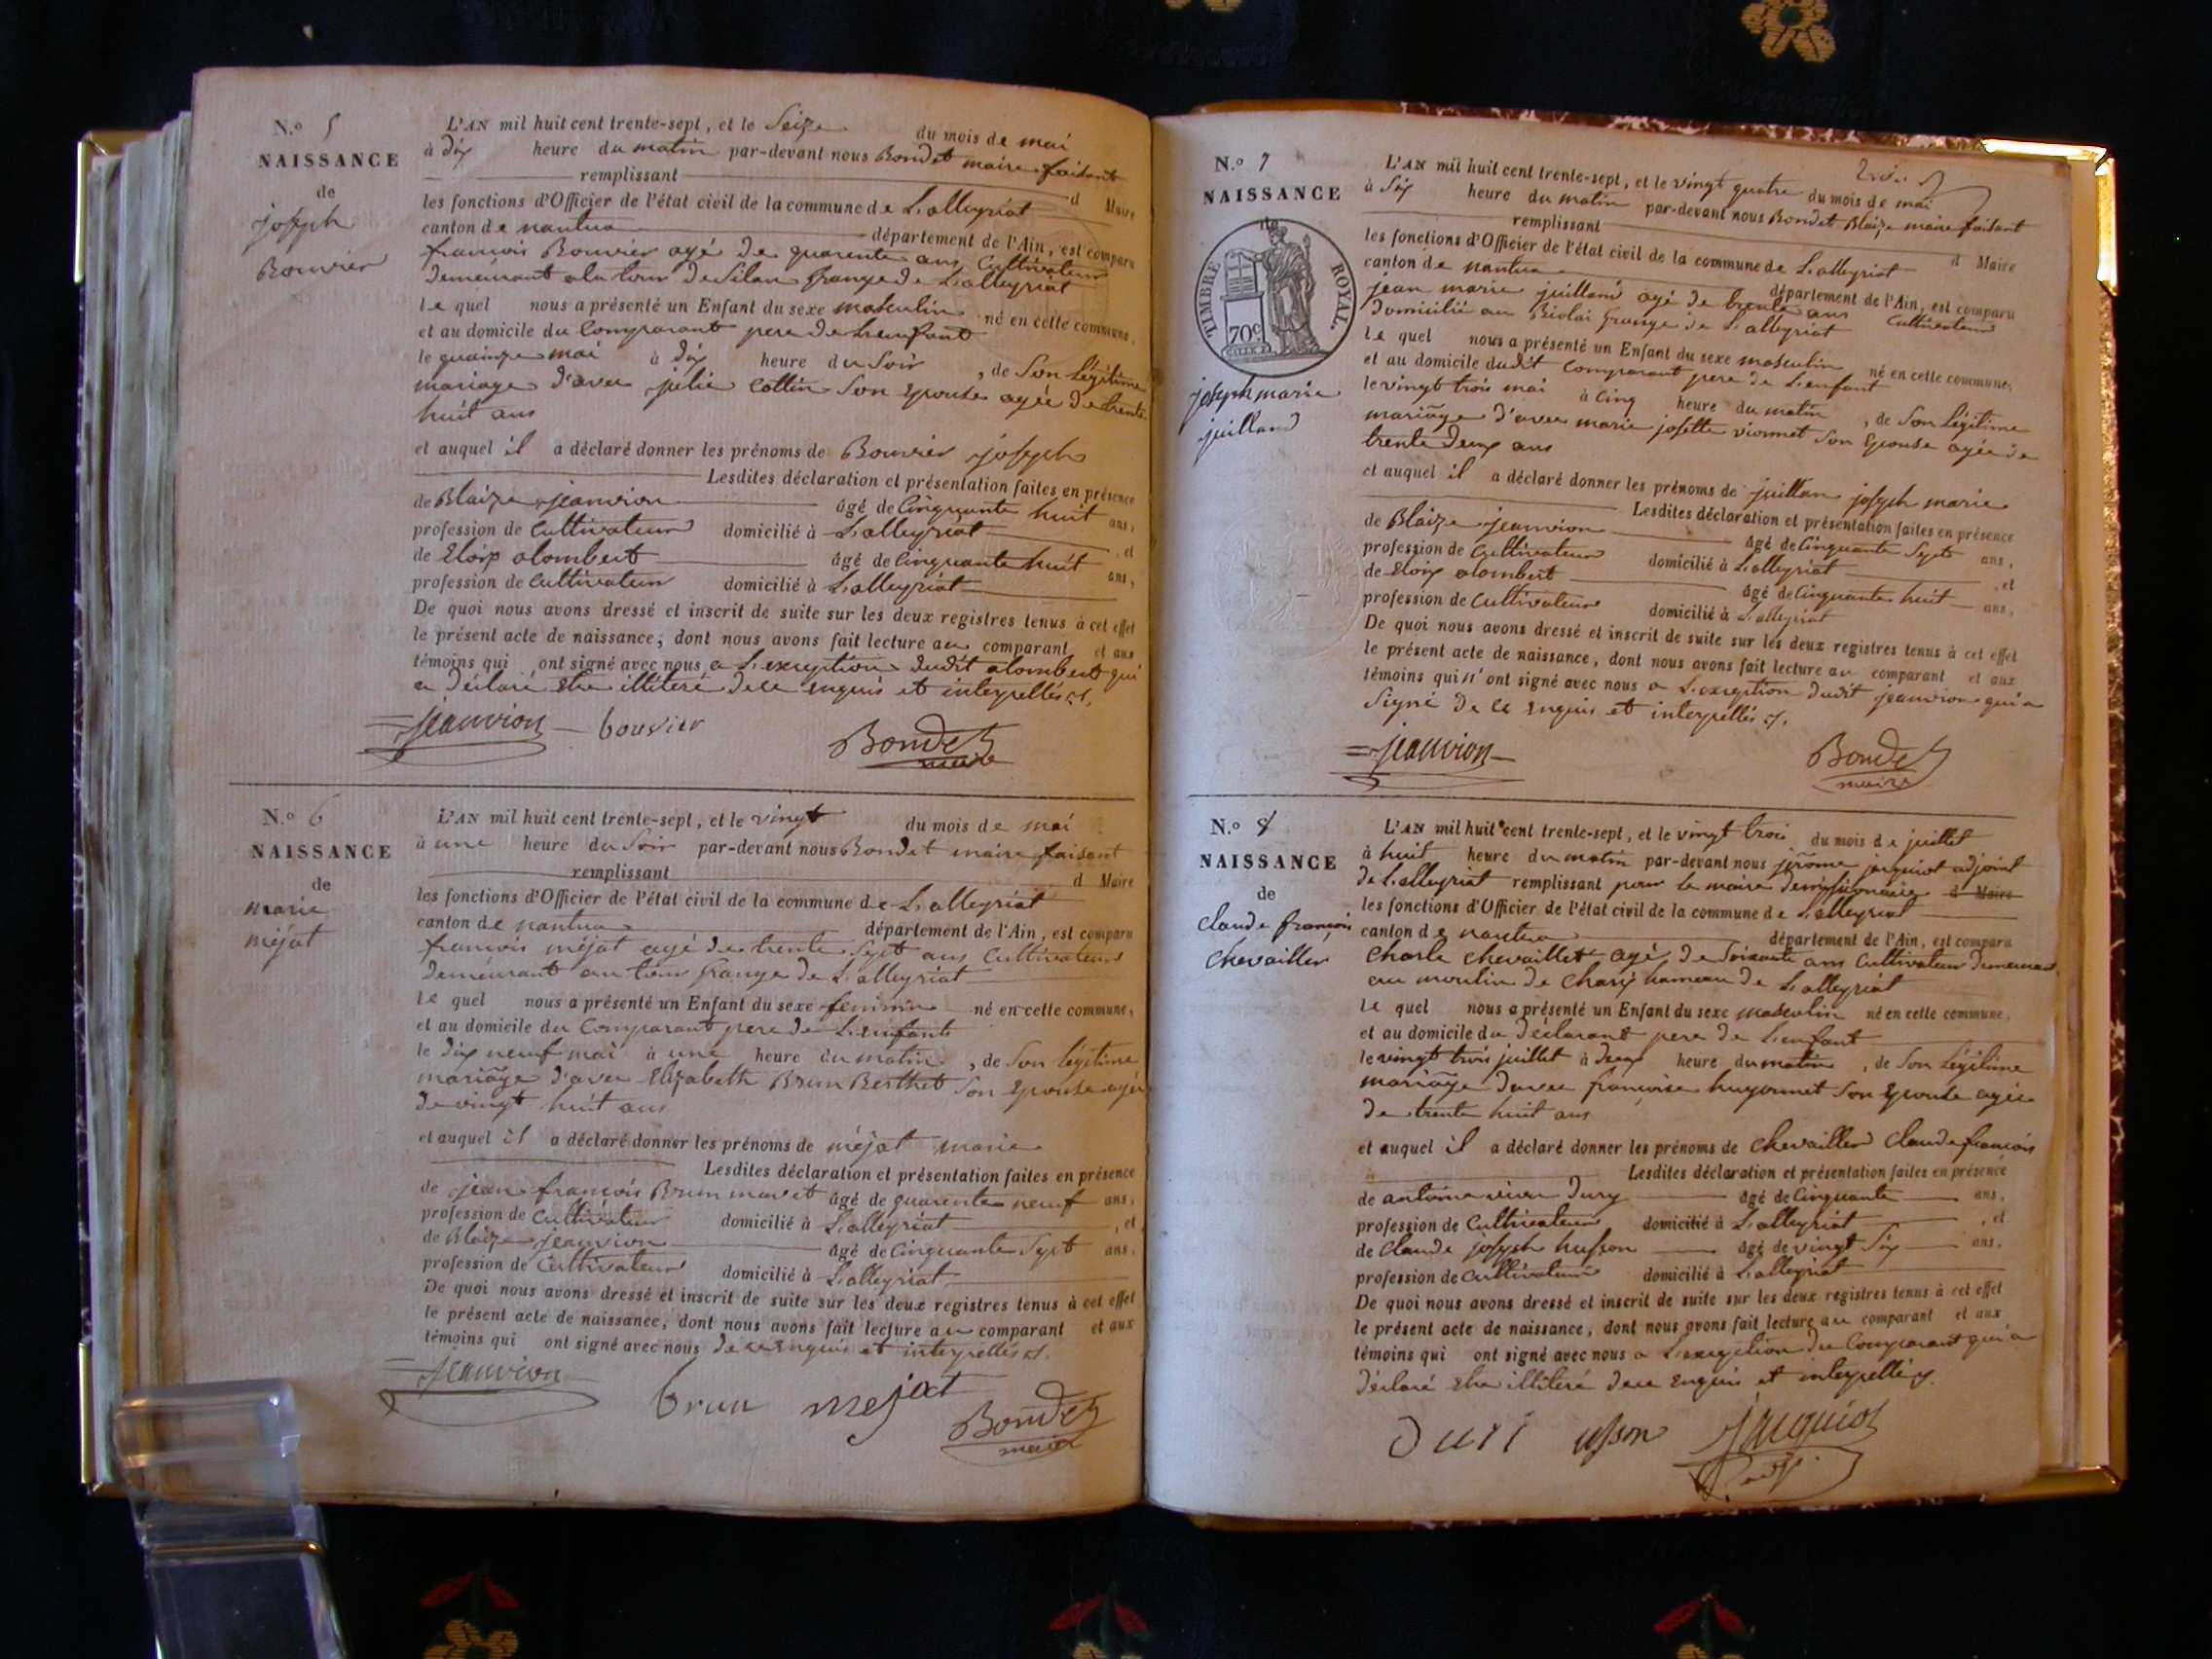 N.o 5
NAISSANCE
de
joseph
Bouvier
L'AN mil huit cent trente-sept, et le Seize du mois de mai
à dix heure du matin par-devant nous Bondet maire faisant
remplissant d Maire
les fonctions d'Officier de l'état civil de la commune de L'alleyriat
canton de nantua département de l'Ain, est comparu
francois Bouvier agé de quarente ans Cultivateur
demeurant a la tour de Silan grange de L'alleyriat
le quel nous a présenté un Enfant du sexe masculin né en cette commune,
et au domicile du Comparant pere de L'enfant
le quainze mai à dix heure du Soir, de Son légitime
mariage d'avec julie Cottin Son Epouse agée de trente
huit ans
et auquel il a déclaré donner les prénoms de Bouvier joseph
Lesdites déclaration et présentation faites en présence
de Blaize jeanvion âgé de Cinquante huit ans,
profession de Cultivateur domicilié à L'alleyriat, et
de Eloix alombert âgé de Cinquante huit ans,
profession de Cultivateur domicilié à L'alleyriat
De quoi nous avons dressé et inscrit de suite sur les deux registres tenus à cet effet
le présent acte de naissance, dont nous avons fait lecture au comparant et aux
témoins qui ont signé avec nous a L'exception dudit alombert qui
a déclaré Etre illiteré de ce enquis et interpellés
jeanvion bouvier Bondet
maire
N.o 6
NAISSANCE
de
marie
méjat
L'AN mil huit cent trente-sept, et le vingt du mois de mai
à une heure du Soir par-devant nous Bondet maire faisant
remplissant d Maire
les fonctions d'Officier de l'état civil de la commune de L'alleyriat
canton de nantua département de l'Ain, est comparu
francois méjat agé de trente Sept ans Cultivateur
demeurant au tour grange de L'alleyriat
le quel nous a présenté un Enfant du sexe feminin né en cette commune,
et au domicile du Comparant pere de L'enfant
le dix neuf mai à une heure du matin, de Son légitime
mariage d'avec Elizabeth Brun Berthet Son Epouse agée
de vingt huit ans
et auquel il a déclaré donner les prénoms de méjat marie
Lesdites déclaration et présentation faites en présence
de jean françois Brun âgé de quarente neuf ans,
profession de Cultivateur domicilié à L'alleyriat, et
de Blaize jeanvion âgé de Cinquante Sept ans,
profession de Cultivateur domicilié à L'alleyriat
De quoi nous avons dressé et inscrit de suite sur les deux registres tenus à cet effet
le présent acte de naissance, dont nous avons fait lecture au comparant et aux
témoins qui ont signé avec nous de ce Enquis et interpellés
jeanvion brun mejat Bondet
maire
N.o 7
NAISSANCE
de
TIMBRE ROYAL.
70c
joseph marie
juilland
L'AN mil huit cent trente-sept, et le vingt quatre du mois de mai
à Six heure du matin par-devant nous Bondet Blaize maire faisant
remplissant d Maire
les fonctions d'Officier de l'état civil de la commune de L'alleyriat
canton de nantua département de l'Ain, est comparu
jean marie juilland agé de trente ans Cultivateur
domicilié au Biolai grange de L'alleyriat
le quel nous a présenté un Enfant du sexe masculin né en cette commune,
et au domicile dudit Comparant pere de L'enfant
le vingt trois mai à cinq heure du matin, de Son légitime
mariage d'avec marie josette vionnet Son Epouse agée de
trente deux ans
et auquel il a déclaré donner les prénoms de juillan joseph marie
Lesdites déclaration et présentation faites en présence
de Blaize jeanvion âgé de Cinquante Sept ans,
profession de Cultivateur domicilié à L'alleyriat, et
de Eloix alombert âgé de Cinquante huit ans,
profession de Cultivateur domicilié à L'alleyriat
De quoi nous avons dressé et inscrit de suite sur les deux registres tenus à cet effet
le présent acte de naissance, dont nous avons fait lecture au comparant et aux
témoins qui n'ont signé avec nous a L'exception dudit jeanvion qui a
Signé de ce enquis et interpellés
jeanvion Bondet
maire
N.o 8
NAISSANCE
de
Claude françois
Chevaillier
L'AN mil huit cent trente-sept, et le vingt trois du mois de juillet
à huit heure du matin par-devant nous jérome jaquiot adjoint
de L'alleyriat remplissant pour le maire demissionaire d Maire
les fonctions d'Officier de l'état civil de la commune de L'alleyriat
canton de nantua département de l'Ain, est comparu
Charle Chevaillet agé de Soixante ans Cultivateur demeurant
au moulin de Charix hameau de L'alleyriat
le quel nous a présenté un Enfant du sexe masculin né en cette commune,
et au domicile du déclarant pere de L'enfant
le vingt trois juillet à deux heure du matin, de Son légitime
mariage d'avec françoise hugonnet Son Epouse agée
de trente huit ans
et auquel il a déclaré donner les prénoms de Chevaillier Claude francois
Lesdites déclaration et présentation faites en présence
de antoine dury âgé de Cinquante ans,
profession de Cultivateur domicilié à L'alleyriat, et
de Claude joseph husson âgé de vingt Six ans,
profession de Cultivateur domicilié à L'alleyriat
De quoi nous avons dressé et inscrit de suite sur les deux registres tenus à cet effet
le présent acte de naissance, dont nous avons fait lecture au comparant et aux
témoins qui ont signé avec nous a L'exception du Comparant qui a
déclaré Etre illiteré de ce Enquis et interpellés
Duri usson jaquiot